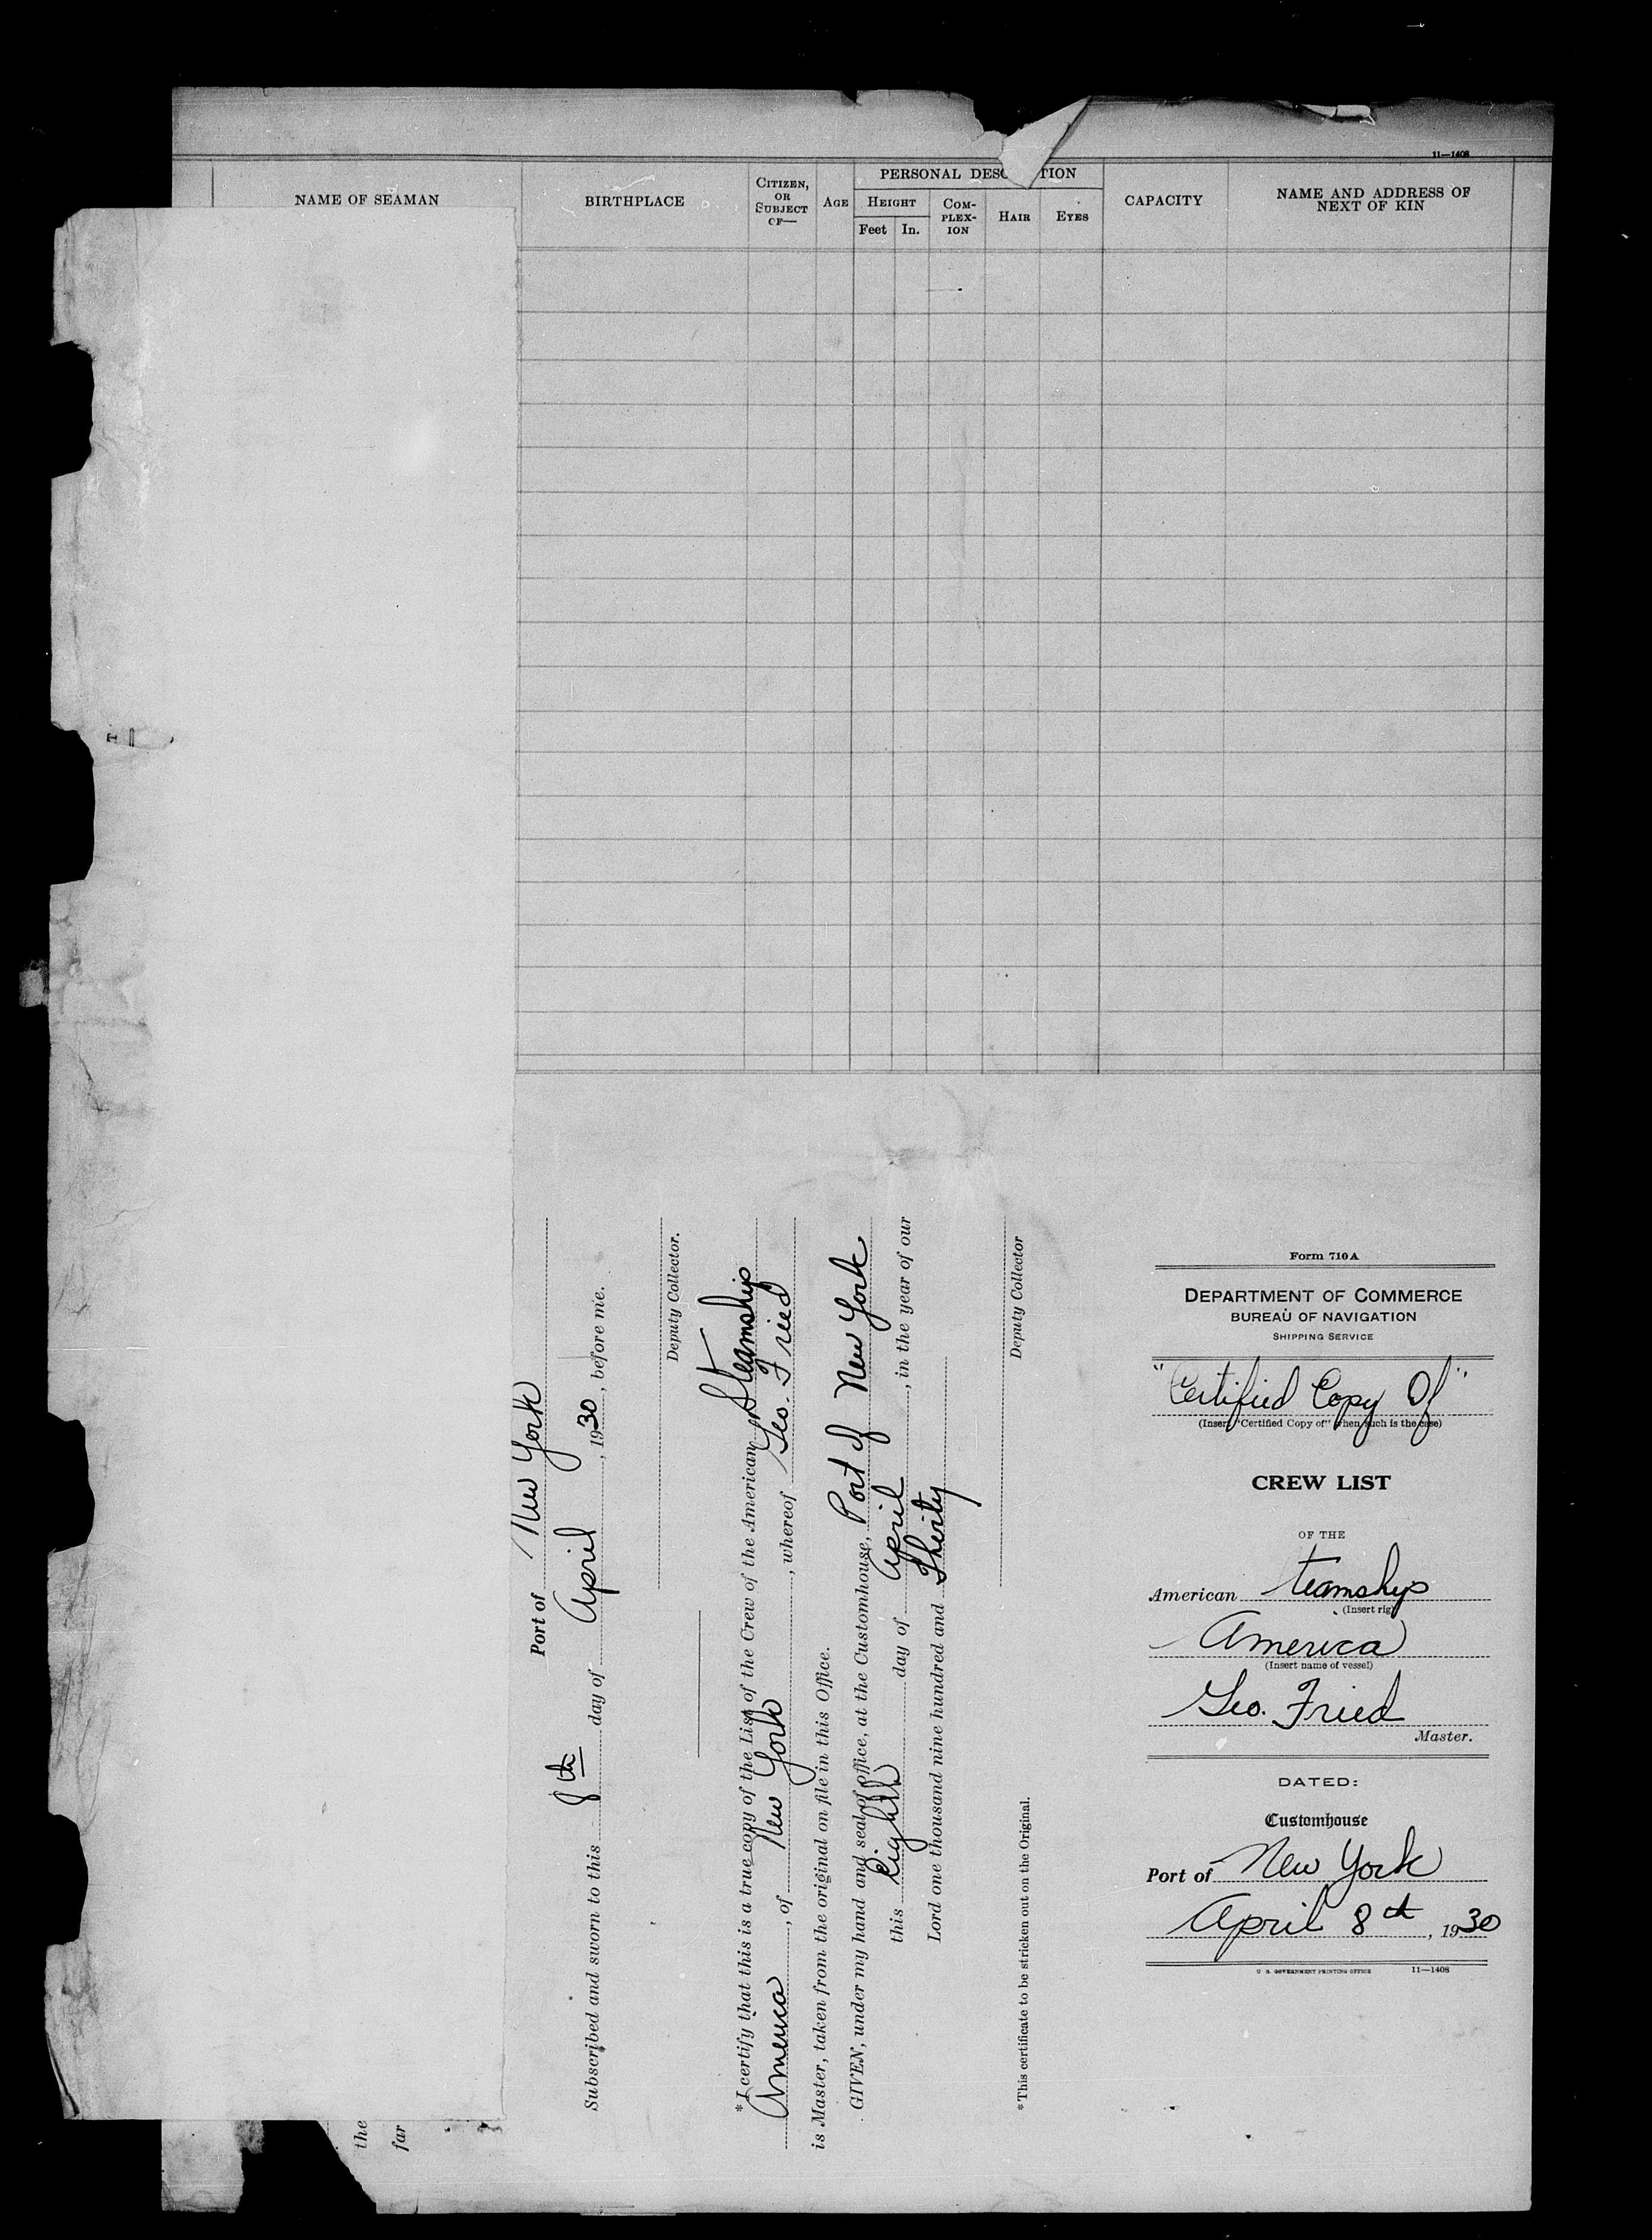 11—1408
NAME OF SEAMAN
BIRTHPLACE
CITIZEN,
OR
SUBJECT
OF—
AGE
PERSONAL DESC TION
HEIGHT
Feet In.
COM-
PLEX-
ION
HAIR
EYES
CAPACITY
NAME AND ADDRESS OF
NEXT OF KIN
the
far
Port of New York
Subscribed and sworn to this 8th day of April, 1930, before me.
Deputy Collector.
* I certify that this is a true copy of the List of the Crew of the American Steamship
America, of New York, whereof Geo. Fried
is Master, taken from the original on file in this Office.
GIVEN, under my hand and seal of office, at the Customhouse, Port of New York
this Eighth day of April, in the year of our
Lord one thousand nine hundred and Thirty
Deputy Collector
* This certificate to be stricken out on the Original.
Form 710A
DEPARTMENT OF COMMERCE
BUREAU OF NAVIGATION
SHIPPING SERVICE
"Certified Copy Of"
(Insert "Certified Copy of" when such is the case)
CREW LIST
OF THE
American teamship
(Insert rig)
America
(Insert name of vessel)
Geo. Fried
Master.
DATED:
Customhouse
Port of New York
April 8th, 1930
U. S. GOVERNMENT PRINTING OFFICE 11—1408